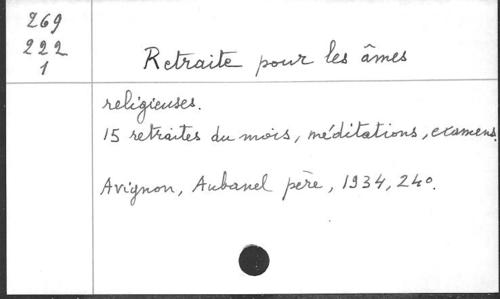 269
222
1
Retraite pour les âmes
religieuses.
15 retraites du mois, méditations, examens.
Avignon, Aubanel père, 1934, 24°.